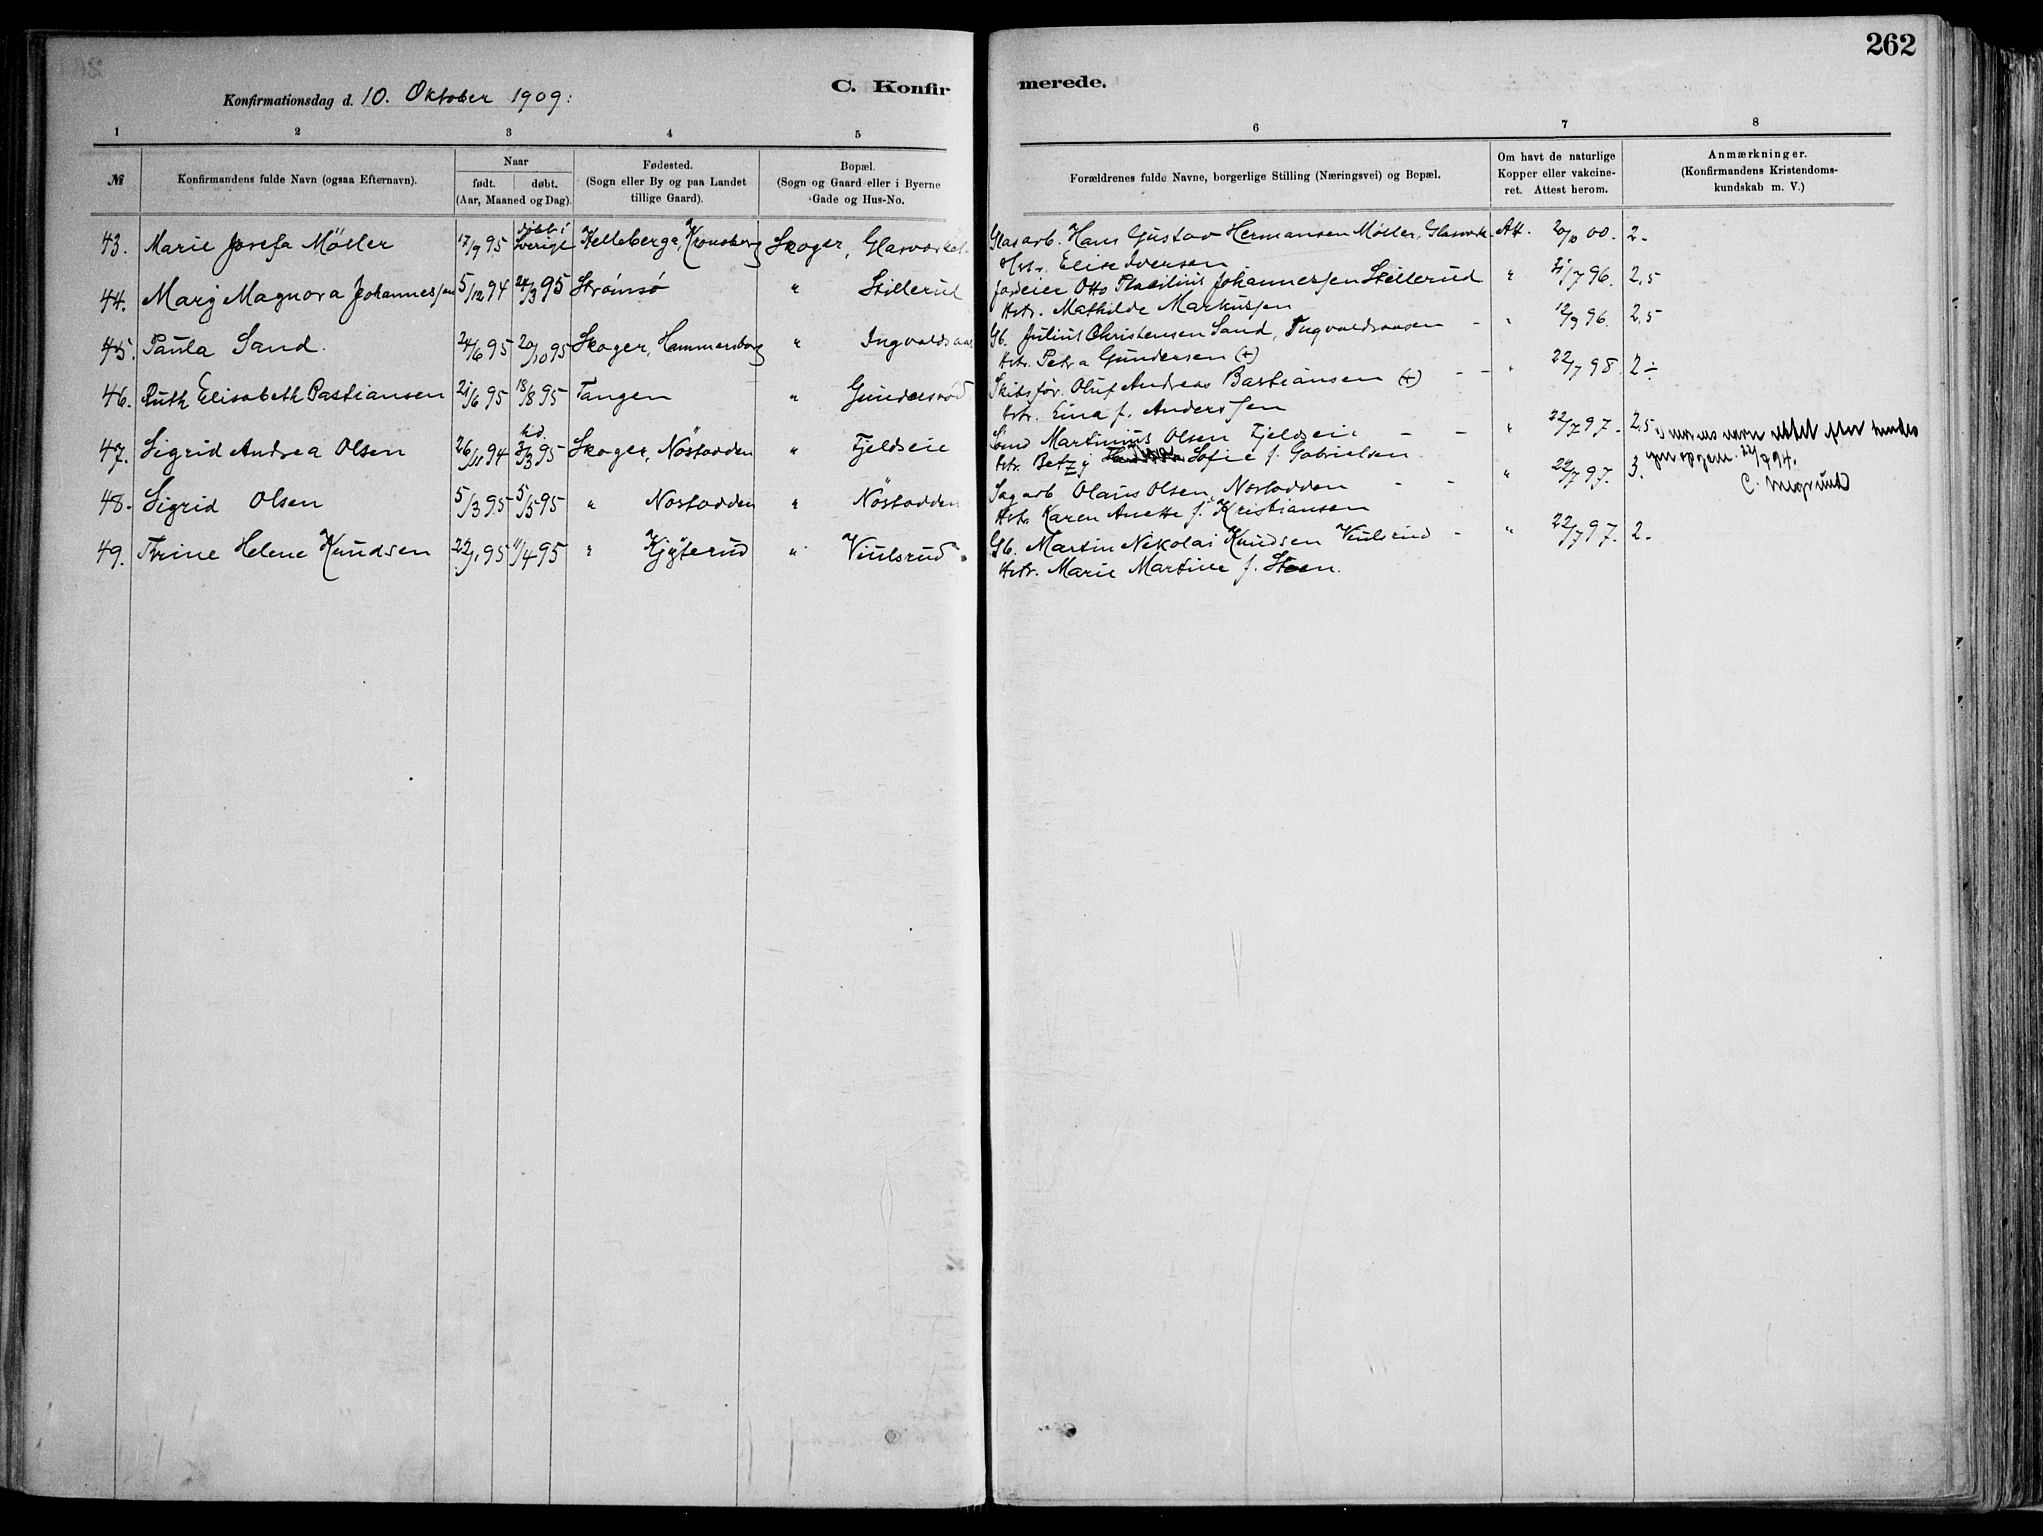 262
C. Konfirmerede.
Konfirmationsdag d. 10. Oktober 1909:
1 2 3 4 5 6 7 8
№
Konfirmandens fulde Navn (ogsaa Efternavn).
Naar
født. døbt.
(Aar, Maaned og Dag).
Fødested.
(Sogn eller By og paa Landet
tillige Gaard).
Bopæl.
(Sogn og Gaard eller i Byerne
Gade og Hus-No.
Forældrenes fulde Navne, borgerlige Stilling (Næringsvei) og Bopæl.
Om havt de naturlige
Kopper eller vakcine-
ret. Attest herom.
Anmærkninger.
(Konfirmandens Kristendoms-
kundskab m. V.)
43. Marie Josefa Möller 17/9 95 döbt i Sverige Kelleberga, Kronoberg Skoger, Glasværket Glasarb. Hans Gustav Hermansen Møller, Glasverk. Att. 20/10 00. 2-
Hstr. Elise Iversen
44. Marij Magnora Johannessen 5/12 94 24/3 95 Strømsø " Stillerud Jordeier Otto Johannessen Stillerud " 21/7 96. 2,5
Hstr. Mathilde Markussen
45. Paula Sand. 24/6 95 20/10 95 Skoger, Hammersborg " Ingvoldsaas Gb. Julius Christensen Sand, Ingvoldsaasen - " 12/9 96. 2,5
Hstr. Petra Gundersen (+)
46. Ruth Elisabeth Bastiansen 21/6 95 18/8 95 Tangen " Gundersrød Skibsfør. Oluf Andreas Bastiansen (+) - - " 22/7 98. 2÷
Hstr. Lina f. Anderssen
47. Sigrid Andrea Olsen 26/11 94 3/3 95 Skoger, Nöstodden " Fjeldseie Martinius Olsen Fjeldseie - - " 22/7 97. 2,5
Hstr. Betzy Sofie f. Gabrielsen
48. Sigrid Olsen 5/3 95 5/5 95 " Nöstodden " Nöstodden Sagarb. Olaus Olsen, Nöstodden - - " 22/7 97. 3.
Hstr. Karen Anette f. Kristiansen
49. Trine Helene Knudsen 22/1 95 11/4 95 " Kjøterud " Viulsrud. Gb. Martin Nikolai Knudsen Viulsrud - " 22/7 97. 2-
Hstr. Marie Martine f. Steen.